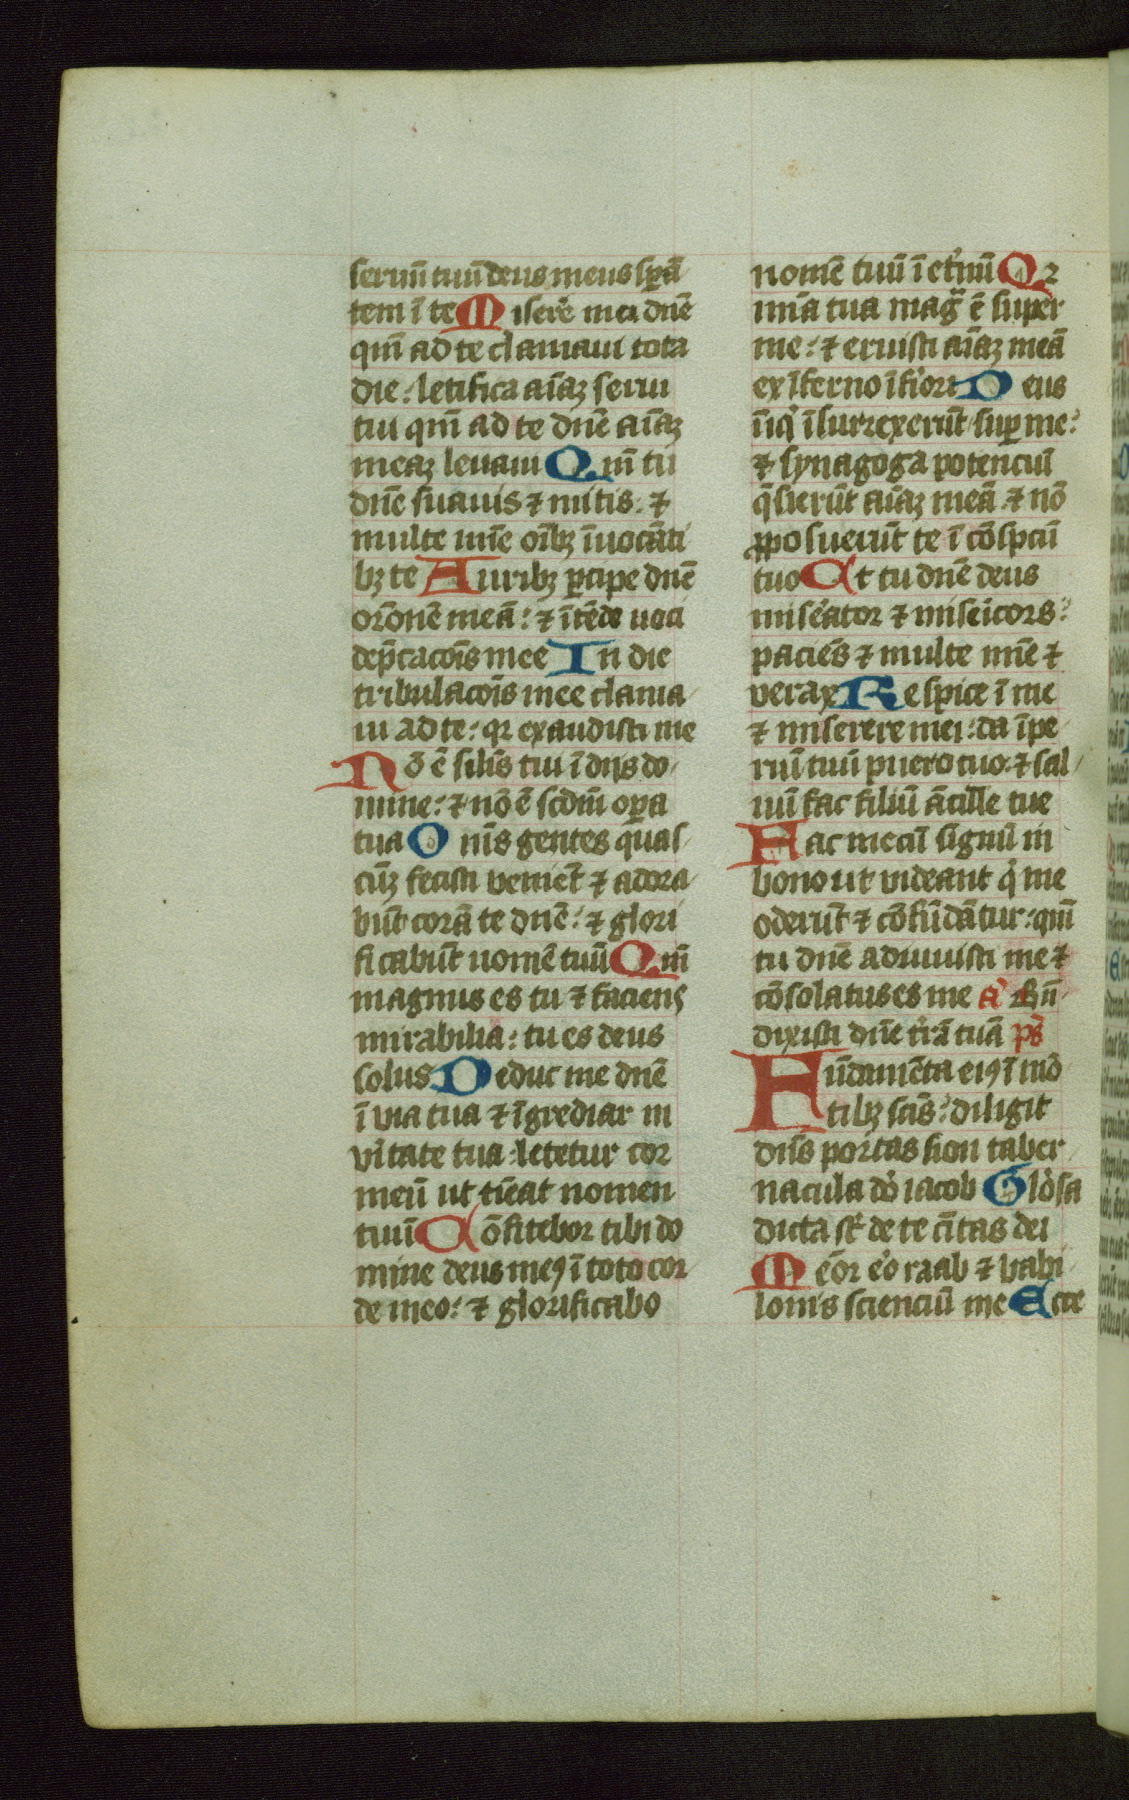 seruū tuū deus meus sꝑā
tem ī te Miserē mei dnē
qm̄ ad te clamaui tota
die : letifica aīaꝫ serui
tui qm̄ ad te dnē aīaꝫ
meaꝫ leuaui Qm̄ tu
dnē suauis ⁊ mitis : ⁊
multe mīe oībꝫ īuocāti
bꝫ te Auribꝫ ꝑcipe dnē
orōnē meā : ⁊ ītēde uoci
dep̄cacōis mee In die
tribulacōis mee clama
ui ad te : qꝛ exaudisti me
Nō ē silīs tui ī dijs do
mine : ⁊ nō ē scdm̄ oꝑa
tua Om̄s gentes quas
cūꝫ fecisti venient̄ ⁊ adora
būt corā te dnē : ⁊ glori
ficabūt nomē tuū Qm̄
magnus es tu ⁊ faciens
mirabilia : tu es deus
solus Deduc me dnē
ī uia tua ⁊ īgrediar in
vītate tua : letetur cor
meū ut tīeat nomen
tuū Cōfitebor tibi do
mine deus meꝯ ī toto cor
de meo : ⁊ glorificabo
nomē tuū ī et̓nū Qꝛ
mīa tua maḡ ē super
me : ⁊ eruisti aīaꝫ meā
ex īferno īfiori Deus
īiq̓ īsurrexerūt suꝑ me :
⁊ synagoga potenciū
q̄sierūt aīaꝫ meā ⁊ nō
ꝓposuerūt te ī cōspcū
tuo Et tu dnē deus
mise̓ator ⁊ miseīcors :
paciēs ⁊ multe mīe ⁊
verax Respice ī me
⁊ miserere mei : da īpe
riū tuū puero tuo ⁊ sal
uū fac filiū ācille tue
Fac mecū signū in
bono ut videant q̓ me
oderūt ⁊ cōfūdātur : qm̄
tu dnē adiuuisti me ⁊
cōsolatus es me a᷒ Bn̄
dixisti dnē t̓rā tuā ps̄
Fūdamēta eiꝯ ī mō
tibꝫ scīs : diligit
dn̄s portas sion taber
nacula dō iacob Glōsa
dicta st̄ de te cītas dei
Meōr eo̓ raab ⁊ babi
lonis scienciū me Ecce